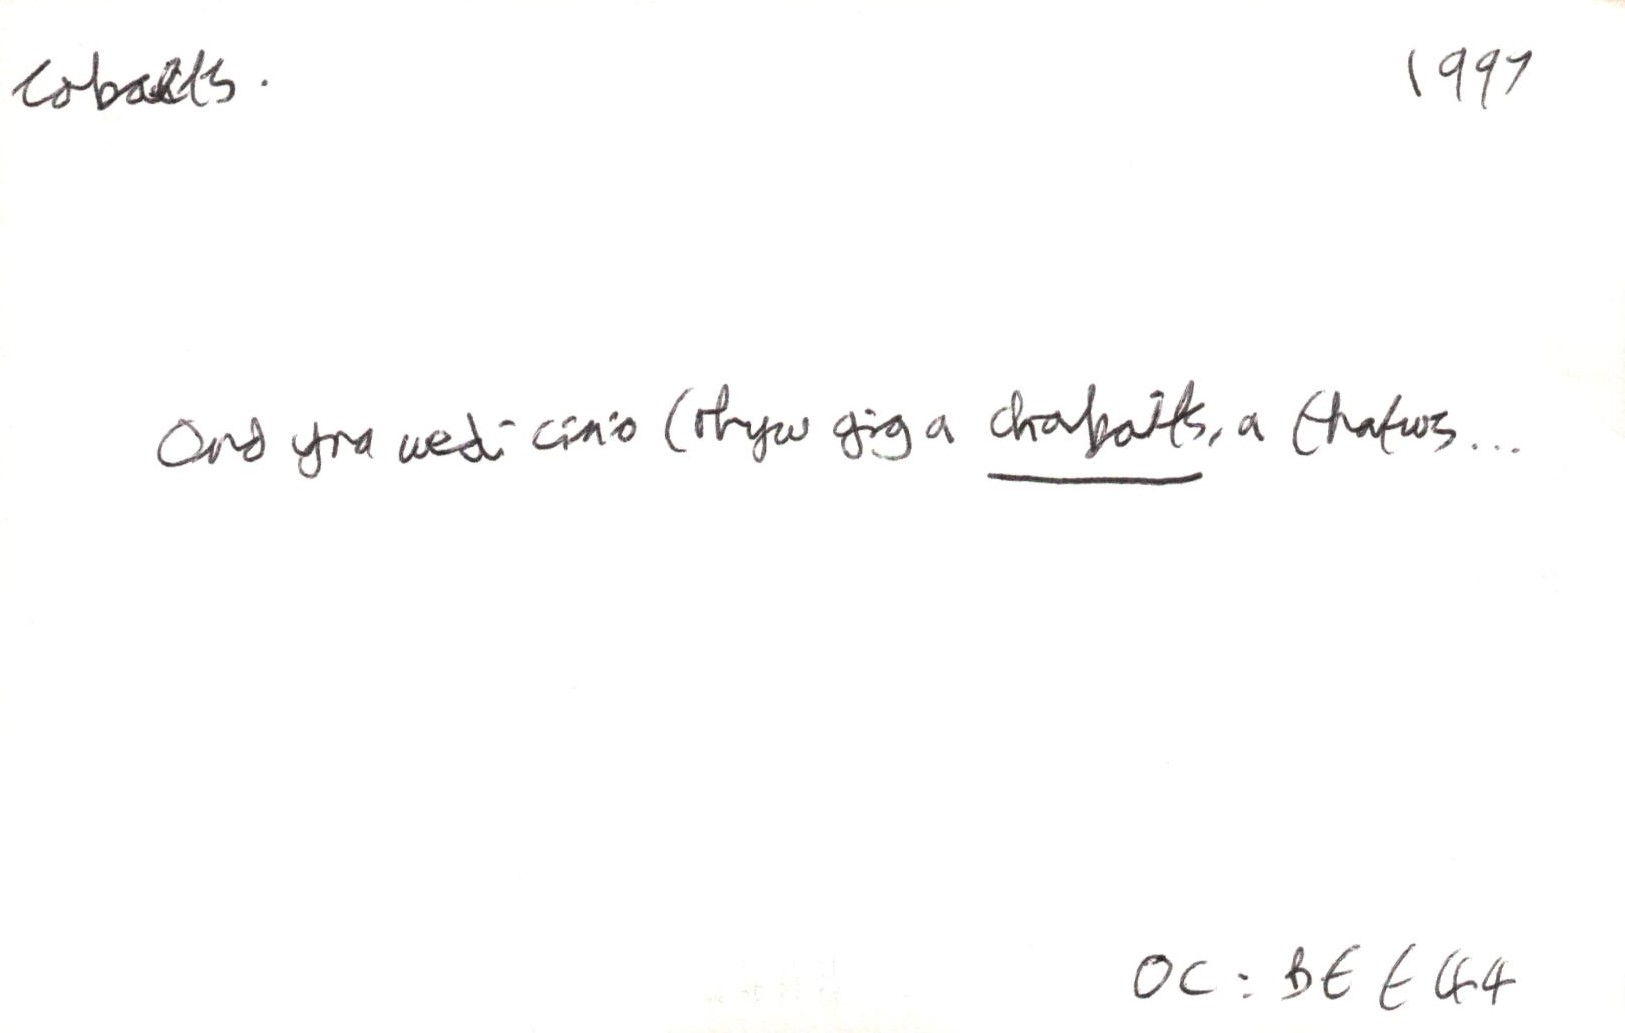 Cabaits. 1997
Ond yna wedi cinio (rhyw gig a chabaits, a thatws...
OC: BEE 44